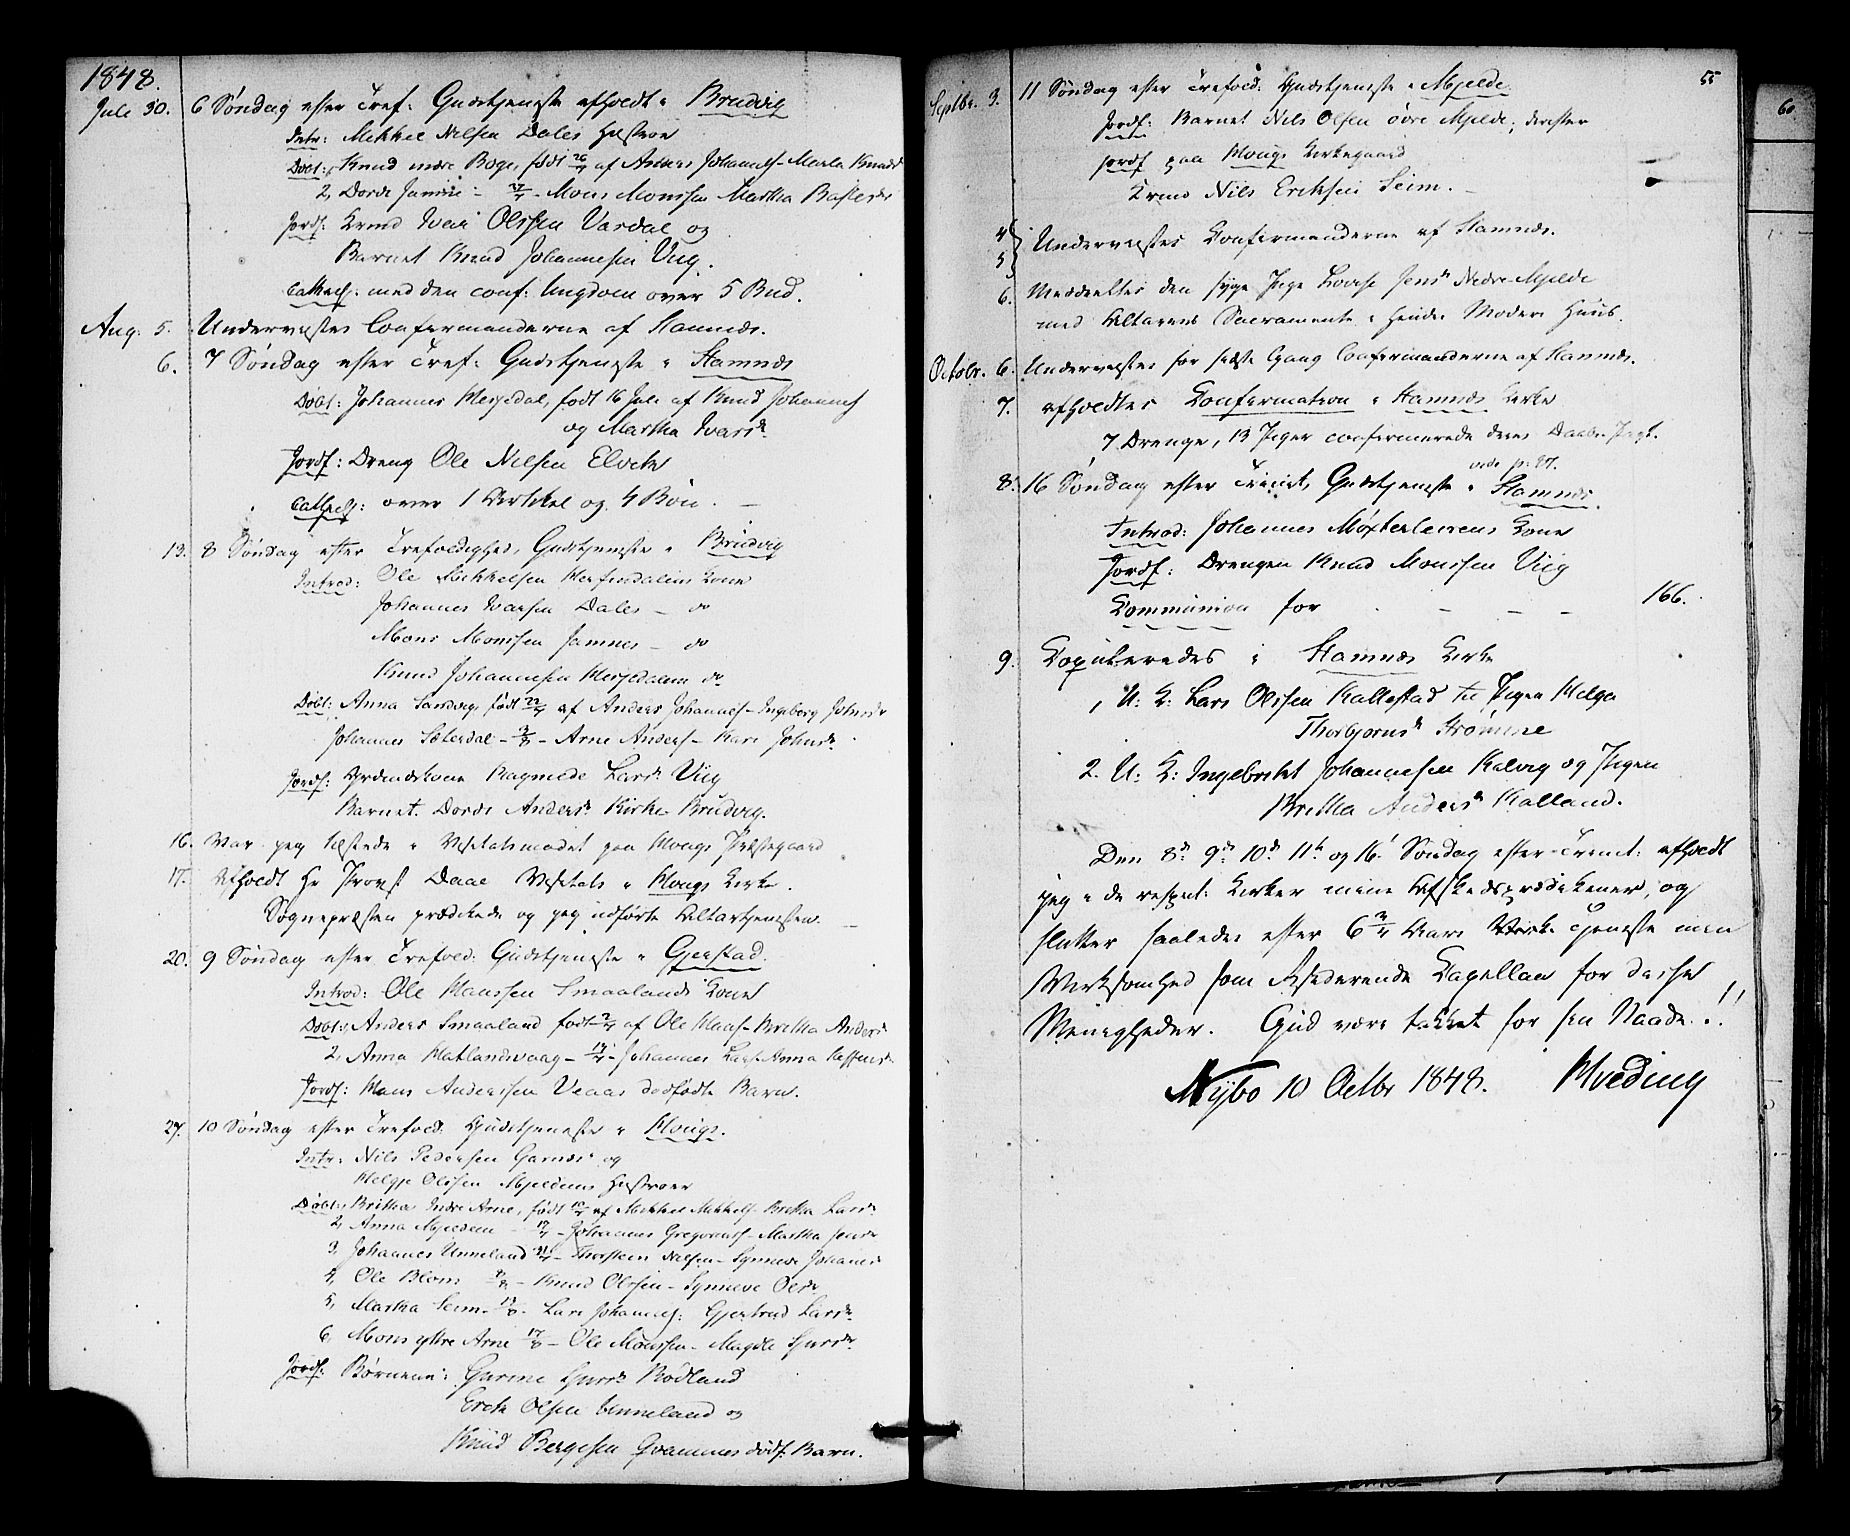 1848.
Juli 30. 6 Søndag efter Tref: Gudstjeneste afholdt i Brudvig
Intr: Mikkel Nilsen Dales Hustrue
Døbt: 1, Knud nedre Boge, født 26/ af Anders Johannes- Marta Knuds
2, Dorde Jamne - 27/ - Mons Monssen Martha
Jordf: Kvind Iver Olssen Vardal og
Barnet Knud Johannesen Viig.
Cathech. med den conf: Ungdom over 5 Bud.
Aug. 5. Undervistes Confirmanderne af Stamnes.
6. 7 Søndag efter Tref: Gudstjeneste i Stamnes
Døbt: Johannes Hesjedal, født 16 Juli af Knud Johannes
og Martha Ivarsdr
Jordf: Dreng Ole Nilsen Elvik
Cathech: over 1 Artikel og 4 Bøn. —
13. 8 Søndag efter Trefoldighed, Gudstjeneste i Brudvig
Introd: Ole Mikkelsen Herfindalens Kone
Johannes Ivarsen Dales - do
Mons Monssen Jamnes - do
Knud Johannesen Hesjedalens do
Døbt: Anna Sandvig, født 22/ af Anders Johannes- Ingeborg Johnsdr
Johannes Sæterdal - 3/ - Arne Anders- Kari Johnsdr
Jordf: Ragnilde Larsdr Viig
Barnet. Dorde Andersdr Kirke Brudvig.
16. Var jeg tilstede i Visitatsmødet paa Hougs Præstegaard
17. Afholdt Hr Provst Daae Visitats i Hougs Kirke.
Sognepræsten prædikede og jeg udførte Altartjenesten. —
20. 9 Søndag efter Trefold: Gudstjeneste i Gjerstad.
Introd: Ole Hanssen Smaalands Kone
Døbt: 1, Anders Smaaland født af Ole Hans- Britha Andersdr
2, Anna Hatlandsvaag - 17/ - Johannes Lars- Anna
Jordf: Hans Anderssen Veaas dødfødte Barn.
27. 10 Søndag efter Trefold: Gudstjeneste i Hougs.
Intr: Nils Pedersen Garnæs og
Helge Olssen Mjeldens Hustruer
Døbt: 1, Britha Indre Arne, født af Mikkel Mikkels- Britha Larsdr
2, Anna Mjelden - 17/ - Johannes Gregorius- Martha Jensdr
3, Johannes Unneland 21/ - Thorstein Nilsen - Synneve Johansdr
4, Ole Blom - Knud Olssen - Synneve Olsdr
5, Martha Seim - 13/ - Lars Johannes: Gjertrud Larsdr
6, Mons ytre Arne 17/ - Ole Monssen - Magdle
Jordf: Børnene: Rødland
Erik Olsen Unneland og
Knud Bergesen Qvamnes dødf. Barn.
55
Septbr. 3. 11 Søndag efter Trefold: Gudstjeneste i Mjelde.
Jordf: Barnet Nils Olsen øvre Mjelde; derefter
jordf paa Hougs Kirkegaard
Nils Eriksen Seim. —
4
5 Undervistes Confirmanderne af Stamnes.
6. Meddeeltes den syge Pige Jensdr Nedre Mjelde
med Altarens Sacramente i hendes Moders Huus.
Octobr. 6. Undervistes for sidste Gang Confirmanderne af Stamnes.
7. Afholdtes Confirmation i Stamnes Kirke
7 Drenge, 13 Piger confirmerede deres Daabs Pagt.
vide p: 97.
8. 16 Søndag efter Trinit, Gudstjeneste i Stamnes.
Introd: Johannes Kone
Jordf: Drengen Knud Monssen Viig
Communion for - - - - 166.
9. Copuleredes i Stamnes Kirke
1, U: K: Lars Olssen Kallestad til Pigen Helga
Thorbjørnsdr Strømme
2. U: K: Ingebrikt Johannesen Kalvig og Pigen
Britha Andersdr Kalland.
Den 8d 9d 10d 11t og 16t Søndag efter Trinit: afholdt
jeg i de respect: Kirker mine Afskedsprædikener, og
slutter saaledes efter 6 3/4 Aars Tjeneste min
Virksomhed som Residerende Capellan for disse
Menigheder. Gud være takket for sin Naade!!
Nybo 10 Octbr 1848. Hveding
60